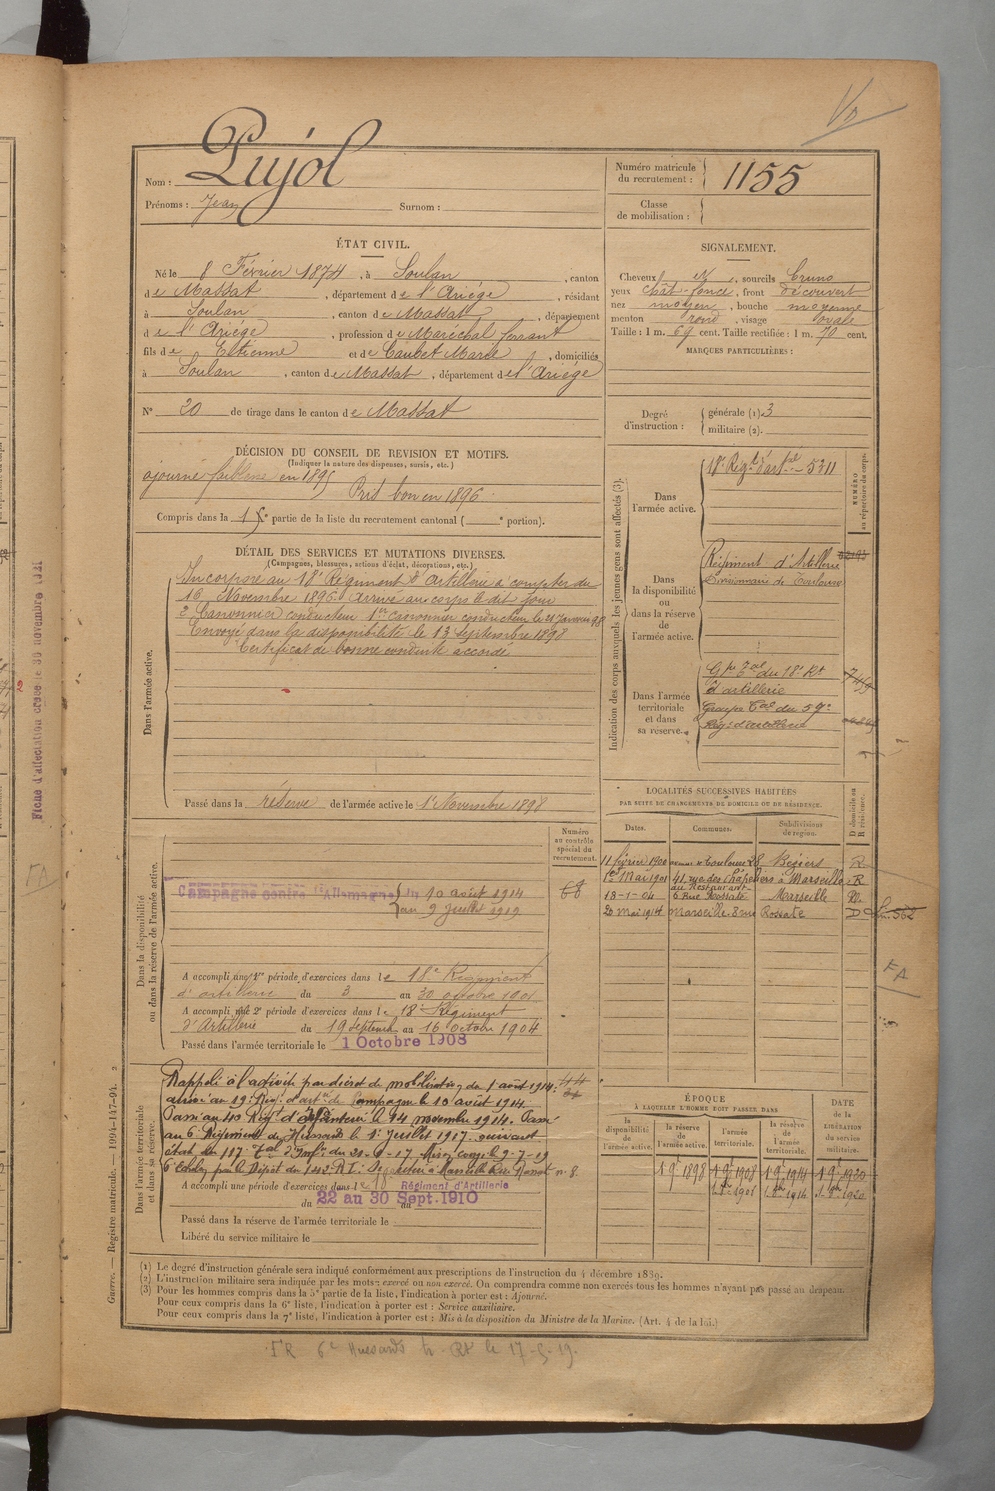 Pujol
Nom :
Prénoms : Jean Surnom :
Numéro matricule
du recrutement : 1155
Classe
de mobilisation :
ÉTAT CIVIL.
Né le 8 Février 1874, à Soulan, canton
de Massat, département de l'Ariége, résidant
à Soulan, canton de Massat, département
de l'Ariége, profession de Maréchal ferrant
fils de Etienne et de Caubet Marie, domiciliés
à Soulan, canton de Massat, département de l'Ariége
N° 20 de tirage dans le canton de Massat
SIGNALEMENT.
Cheveux et, sourcils bruns
yeux chât. foncé, front découvert
nez moyen, bouche moyenne
menton rond, visage ovale
Taille : 1 m. 69 cent. Taille rectifiée : 1 m. 70 cent.
MARQUES PARTICULIÈRES :
Degré
d'instruction :
générale (1). 3
militaire (2).
DÉCISION DU CONSEIL DE REVISION ET MOTIFS.
(Indiquer la nature des dispenses, sursis, etc.)
ajourné faiblesse en 1895
Pris bon en 1896
Compris dans la 1e partie de la liste du recrutement cantonal ( e portion).
DÉTAIL DES SERVICES ET MUTATIONS DIVERSES.
(Campagnes, blessures, actions d'éclat, décorations, etc.)
Dans l'armée active.
Incorporé au 18e Régiment d'artillerie à compter du
16 Novembre 1896. Arrivé au corps le dit jour
2e Canonnier conducteur 1er canonnier conducteur le 21 Janvier 98
Envoyé dans la disponibilité le 13 Septembre 1898
Certificat de bonne conduite accordé
Passé dans la réserve de l'armée active le 1er Novembre 1898
Indication des corps auxquels les jeunes gens sont affectés (3).
NUMÉRO
au répertoire du corps.
Dans
l'armée active.
18e Régt d'artie 5311
Dans
la disponibilité
ou
dans la réserve de
l'armée active.
Régiment d'Artillerie
Divisionnaire de Toulouse
Dans l'armée
territoriale
et dans
sa réserve.
Gpe Tal du 18e Rt
d'artillerie
Groupe Tal du 57e
Reg. d'artillerie
LOCALITÉS SUCCESSIVES HABITÉES
PAR SUITE DE CHANGEMENTS DE DOMICILE OU DE RÉSIDENCE.
Dates. Communes. Subdivisions
de région.
D domicile ou
R résidence.
11 février 1900 avenue de Toulouse 28 Béziers R
1er Mai 1901 41 rue des Chapeliers à Marseille R
au Restaurant
18-1-04 6 Rue Rossate Marseille R
20 mai 1914 Marseille 8 rue Rossate D
Numéro
au contrôle
spécial du
recrutement.
Dans la disponibilité
ou dans la réserve de l'armée active.
Campagne contre l'Allemagne du 10 août 1914
au 9 Juillet 1919
68
A accompli une 1re période d'exercices dans le 18e Régiment
d'artillerie du 3 au 30 octobre 1901
A accompli une 2e période d'exercices dans le 18e Régiment
d'Artillerie du 19 septemb. au 16 octobre 1904
Passé dans l'armée territoriale le 1 Octobre 1908
Dans l'armée territoriale
et dans sa réserve.
Rappelé à l'activité par décret de mobilisation du 1 août 1914.
arrivé au 19e Rég. d'artie de Campagne le 10 août 1914
Passé au 40 Régt d'Infanterie le 14 novembre 1914. Passé
au 6e Régiment de Hussards le 1er Juillet 1917. suivant
état du 117e Tal d'Infie du 21-6-17. Mis en congé le 9-7-19
6e Echelon par le Dépôt du 141e R.I. Se retire à Marseille Rue Rossate n. 8
A accompli une période d'exercices dans le 18e Régiment d'Artillerie
du 22 au 30 Sept. 1910
Passé dans la réserve de l'armée territoriale le
Libéré du service militaire le
ÉPOQUE
À LAQUELLE L'HOMME DOIT PASSER DANS
la
disponibilité
de
l'armée active.
la réserve
de
l'armée active.
l'armée
territoriale.
la réserve
de
l'armée
territoriale.
DATE
de la
LIBÉRATION
du service
militaire.
1 9e 1898 1 9e 1908 1 9e 1914 1 9e 1920
(1) Le degré d'instruction générale sera indiqué conformément aux prescriptions de l'instruction du 4 décembre 1889.
(2) L'instruction militaire sera indiquée par les mots : exercé ou non exercé. On comprendra comme non exercés tous les hommes n'ayant pas passé au drapeau.
(3) Pour les hommes compris dans la 5e partie de la liste, l'indication à porter est : Ajourné.
Pour ceux compris dans la 6e liste, l'indication à porter est : Service auxiliaire.
Pour ceux compris dans la 7e liste, l'indication à porter est : Mis à la disposition du Ministre de la Marine. (Art. 4 de la loi.)
Guerre. — Registre matricule. — 1994-147-94. 2
Fiche d'affectation créée le 30 novembre 1921
FA
FA
6e Hussards le 17-5-19.